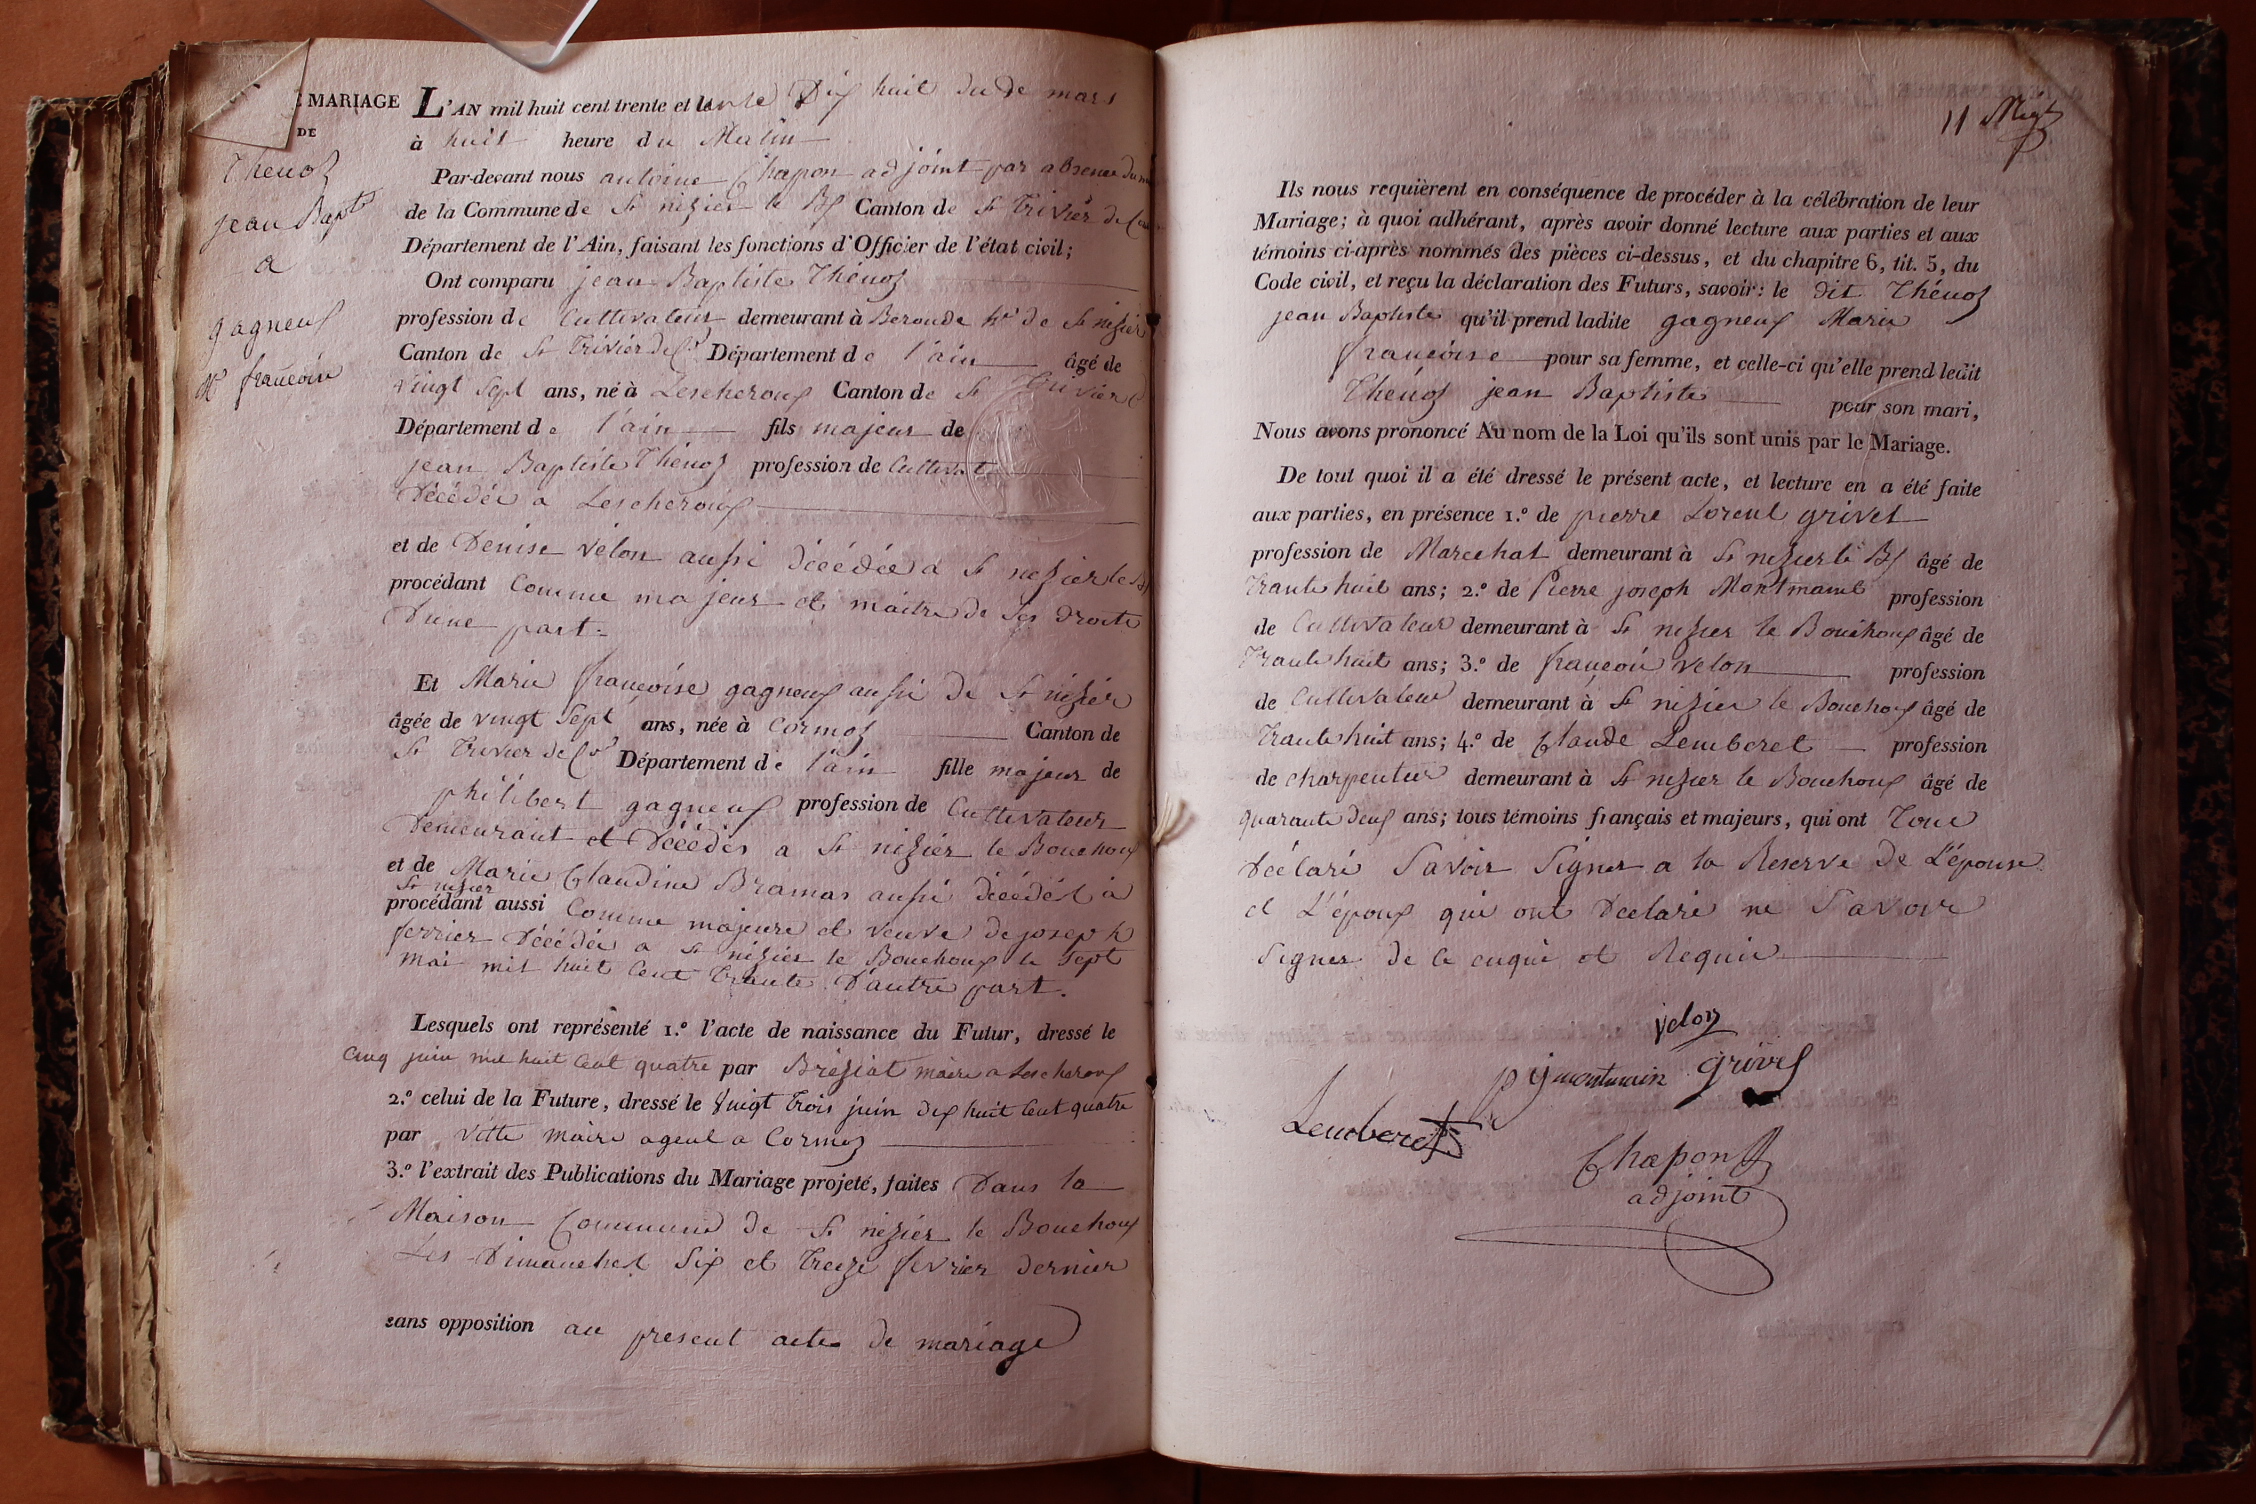 E MARIAGE
DE
Thenoz
jean Bapte
a
gagneux
Me françoise
L'AN mil huit cent trente et un le Dix huit du de mars
à huit heure du Matin
Par-devant nous antoine Chapon adjoint par absence du
de la Commune de St nizier le Bx Canton de St Trivier de
Département de l'Ain, faisant les fonctions d'Officier de l'état civil;
Ont comparu jean Baptiste Thénoz
profession de Cultivateur demeurant à Beroude hau de St nizier
Canton de St Trivier de Cs Département de l'ain âgé de
vingt Sept ans, né à Lescheroux Canton de St Trivier
Département de l'ain fils majeur de
jean Baptiste Thenoz profession de Cultivat
Décédée a Lescheroux
et de Denise velon aussi décédée a St nizier le Bx
procédant comme majeur et maitre de ses droits
D'une part =
Et Marie françoise gagneux aussi de St nizier
âgée de vingt Sept ans, née à Cormoz Canton de
St Trivier de Cs Département de l'ain fille majeur de
philibert gagneux profession de Cultivateur
Demeurant et Décédés a St nizier le Bouchoux
et de Marie Claudine Bramas aussi décédés a
St nizier
procédant aussi Comme majeure et veuve de joseph
ferrier Décédée a St nizier le Bouchoux le Sept
mai mil huit Cent trente D'autre part.
Lesquels ont représenté 1.º l'acte de naissance du Futur, dressé le
Cinq juin mil huit Cent quatre par Bréziat maire a Lescheroux
2.º celui de la Future, dressé le Vingt trois juin dix huit Cent quatre
par vitte maire agent a Cormoz
3.º l'extrait des Publications du Mariage projeté, faites Dans la
Maison Commune de St nizier le Bouchoux
Les Dimanches Six et treize fevrier dernier
sans opposition au present acte de mariage
11 Migt
Ils nous requièrent en conséquence de procéder à la célébration de leur
Mariage; à quoi adhérant, après avoir donné lecture aux parties et aux
témoins ci-après nommés des pièces ci-dessus, et du chapitre 6, tit. 5, du
Code civil, et reçu la déclaration des Futurs, savoir: le dit Thénoz
jean Baptiste qu'il prend ladite gagneux Marie
françoise pour sa femme, et celle-ci qu'elle prend ledit
Thénoz jean Baptiste pour son mari,
Nous avons prononcé Au nom de la Loi qu'ils sont unis par le Mariage.
De tout quoi il a été dressé le présent acte, et lecture en a été faite
aux parties, en présence 1.º de pierre Loreul grivel
profession de Marechal demeurant à St nizier le Bx âgé de
Trante huit ans; 2.º de Pierre joseph Montmain profession
de Cultivateur demeurant à St nizier le Bouchoux âgé de
Trante huit ans; 3.º de françois velon profession
de Cultivateur demeurant à St nizier le Bouchoux âgé de
Trante huit ans; 4.º de Claude Lemberet profession
de charpentier demeurant à St nizier le Bouchoux âgé de
quarante deux ans; tous témoins français et majeurs, qui ont Tous
Déclaré Savoir Signer a la Reserve de L'épouse
et L'époux qui ont Declaré ne Savoir
Signer de ce enqui et Requis
velon
p j montmain grivel
Lemberet
Chapon
adjoint